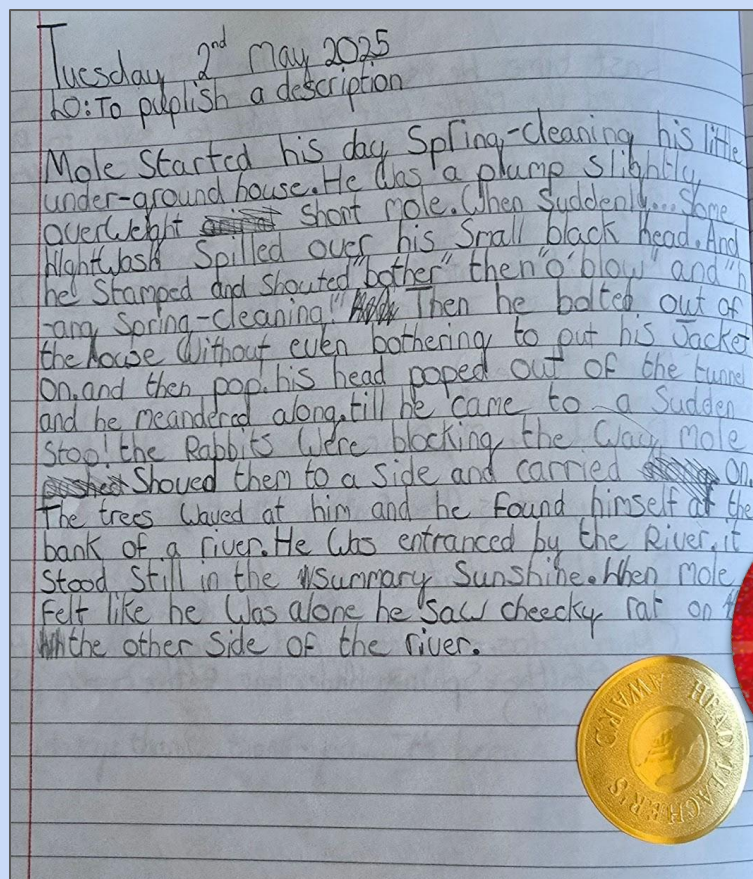 Tuesday 2nd May 2025
LO: To puplish a description
Mole Started his day Spring-cleaning his little
under-ground house. He Was a plump slightly
overWeight Short mole. When Suddenly... Some
Spilled over his Small black head. And
he Stamped and Shouted "bother" then "o' blow" and "h
-ang Spring-cleaning!" Then he bolted out of
the house Without even bothering to put his Jacket
On. and then pop. his head poped out of the tunnel
and he meandered along. till he came to a Sudden
Stop! the Rabbits Were blocking the Way, Mole
Shoved them to a Side and carried On.
The trees Waved at him and he found himself at the
bank of a river. He Was entranced by the River, it
Stood Still in the summary Sunshine. When Mole
felt like he Was alone he Saw cheecky rat on
the other Side of the river.
HEAD TEACHER'S AWARD